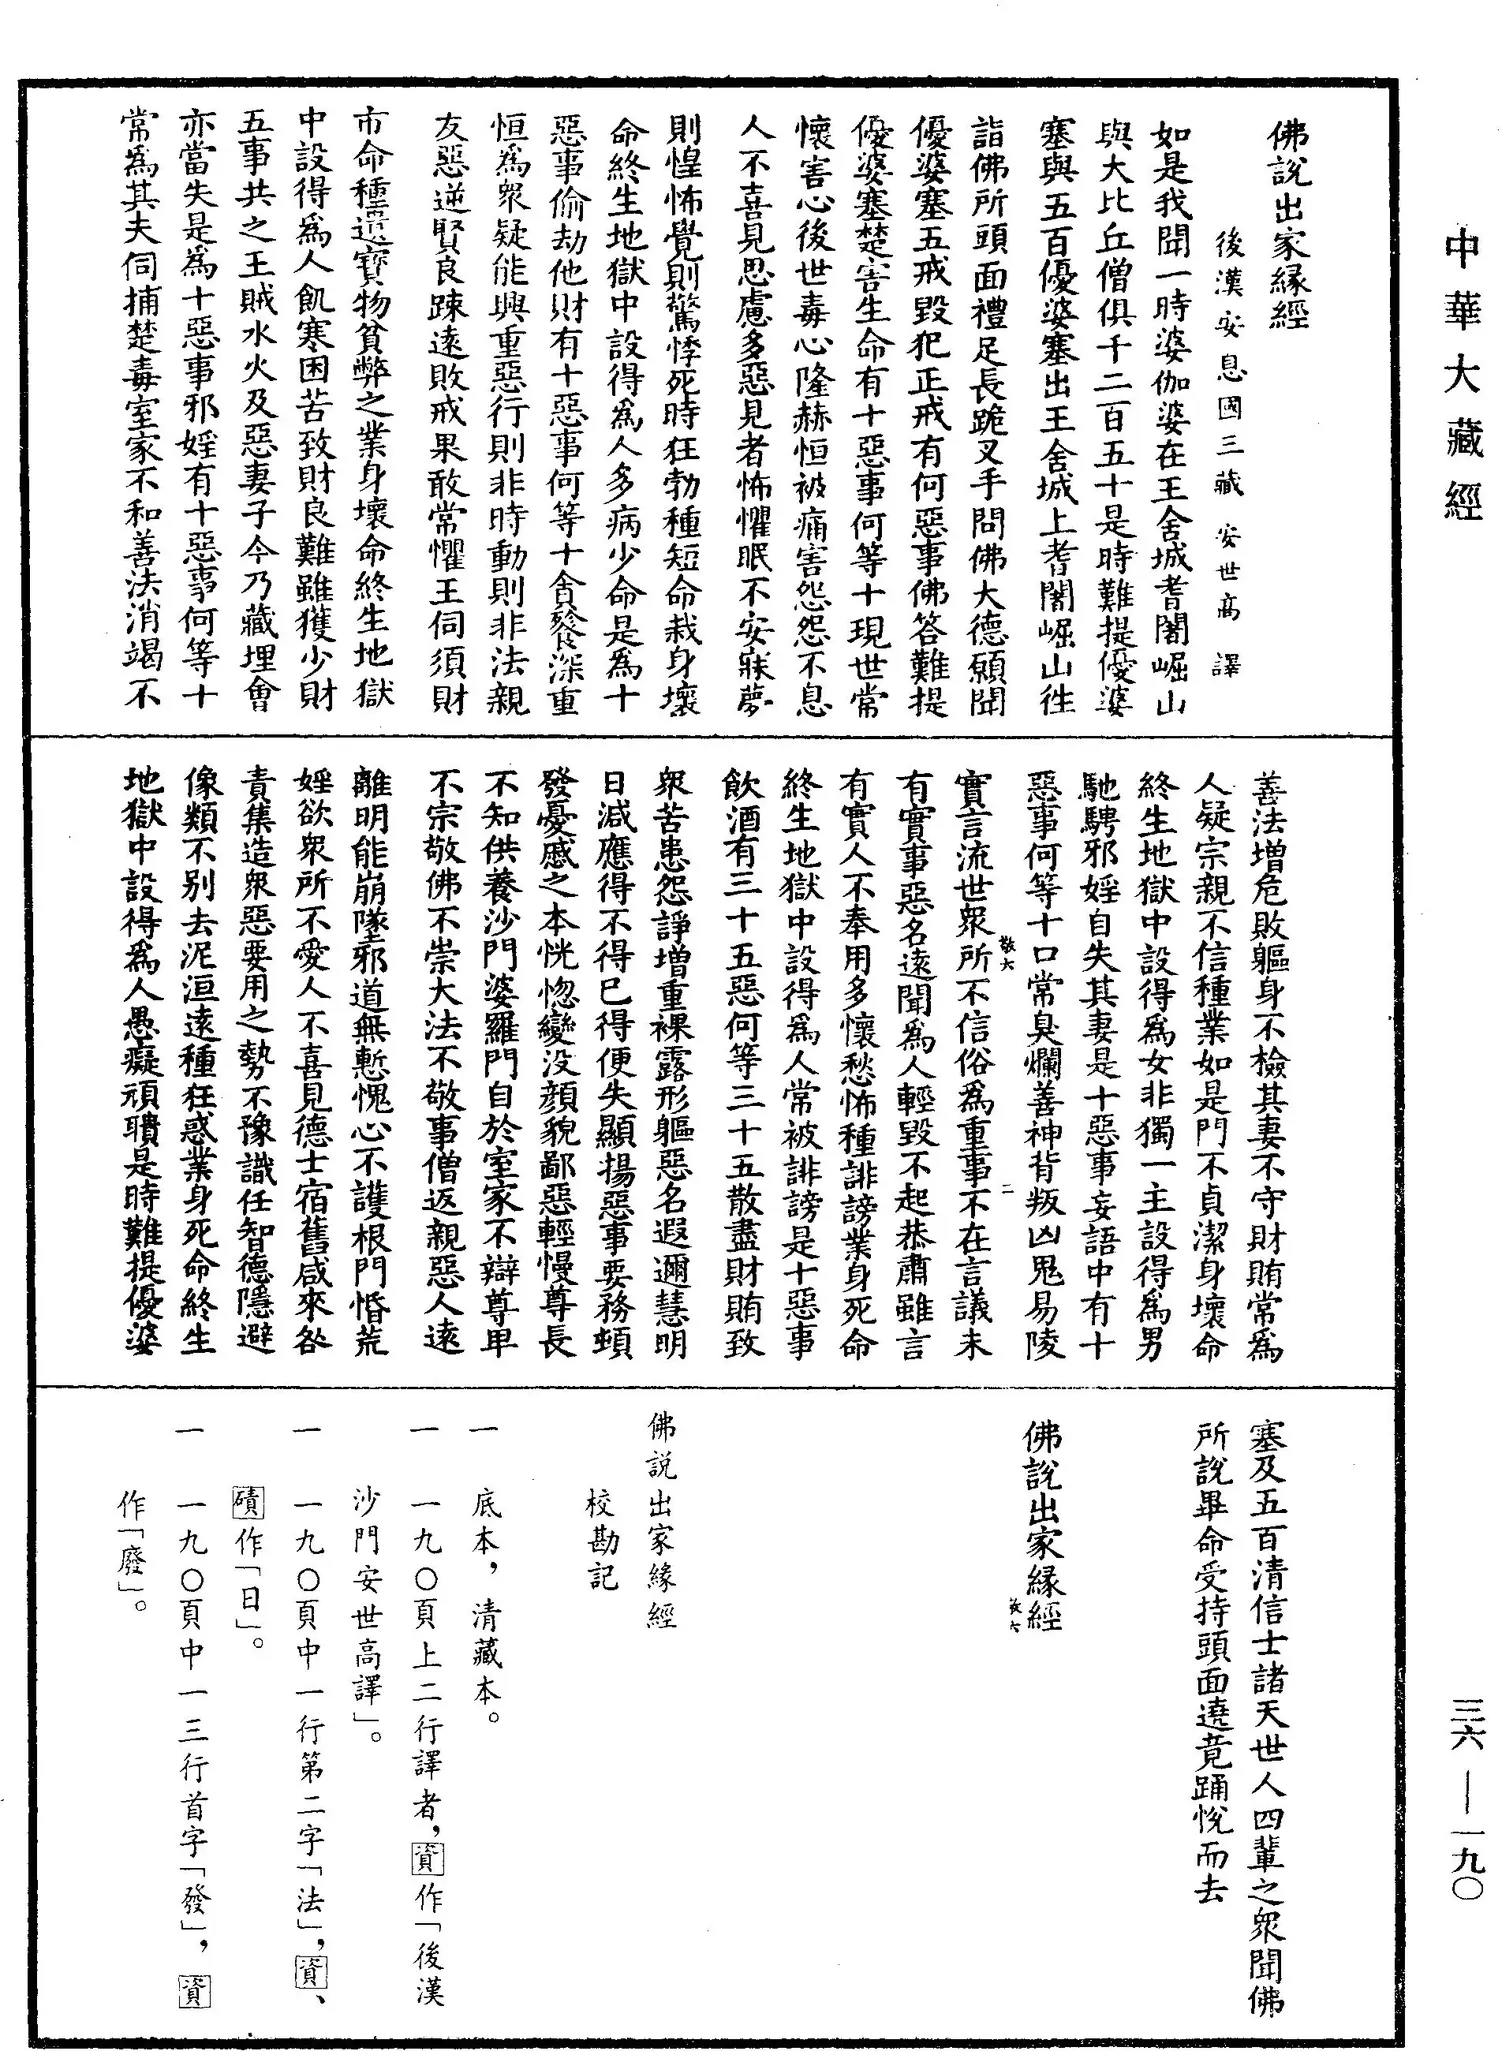 中華大藏經
佛說出家緣經
後漢安息國三藏安世高譯
如是我聞一時婆伽婆在王舍城耆闍崛山
與大比丘僧俱千二百五十是時難提優婆
塞與五百優婆塞出王舍城上耆闍崛山往
詣佛所頭面禮足長跪叉手問佛大德願聞
優婆塞五戒毀犯正戒有何惡事佛答難提
優婆塞楚害生命有十惡事何等十現世常
懷害心後世毒心隆赫恒被痛害怨怨不息
人不喜見思慮多惡見者怖懼眠不安寐夢
則惶怖覺則驚悸死時狂勃種短命栽身壞
命終生地獄中設得為人多病少命是為十
惡事偷劫他財有十惡事何等十貪餮深重
恒為眾疑能興重惡行則非時動則非法親
友惡逆賢良踈遠敗戒果敢常懼王伺須財
市命種遺寶物貧弊之業身壞命終生地獄
中設得為人飢寒困苦致財良難雖獲少財
五事共之王賊水火及惡妻子今乃藏埋會
亦當失是為十惡事邪婬有十惡事何等十
常為其夫伺捕楚毒室家不和善法消竭不
善法增危敗軀身不檢其妻不守財賄常為
人疑宗親不信種業如是門不貞潔身壞命
終生地獄中設得為女非獨一主設得為男
馳騁邪婬自失其妻是十惡事妄語中有十
惡事何等十口常臭爛善神背叛凶鬼易陵
實言流世眾所不信俗為重事不在言議未
敬六 二
有實事惡名遠聞為人輕毀不起恭肅雖言
有實人不奉用多懷愁怖種誹謗業身死命
終生地獄中設得為人常被誹謗是十惡事
飲酒有三十五惡何等三十五散盡財賄致
眾苦患怨諍增重裸露形軀惡名遐邇慧明
日減應得不得已得便失顯揚惡事要務頓
發憂慼之本恍惚變沒顏貌鄙惡輕慢尊長
不知供養沙門婆羅門自於室家不辯尊卑
不宗敬佛不崇大法不敬事僧返親惡人遠
離明能崩墜邪道無慙愧心不護根門惛荒
婬欲眾所不愛人不喜見德士宿舊咸來咎
責集造眾惡要用之勢不豫識任智德隱避
像類不別去泥洹遠種狂惑業身死命終生
地獄中設得為人愚癡頑聵是時難提優婆
塞及五百清信士諸天世人四輩之眾聞佛
所說畢命受持頭面遶竟踊悅而去
佛說出家緣經
敬六
佛説出家緣經
校勘記
一 底本，清藏本。
一 一九〇頁上二行譯者，資作「後漢
沙門安世高譯」。
一 一九〇頁中一行第二字「法」，資、
磧作「日」。
一 一九〇頁中一三行首字「發」，資
作「廢」。
三六—一九〇